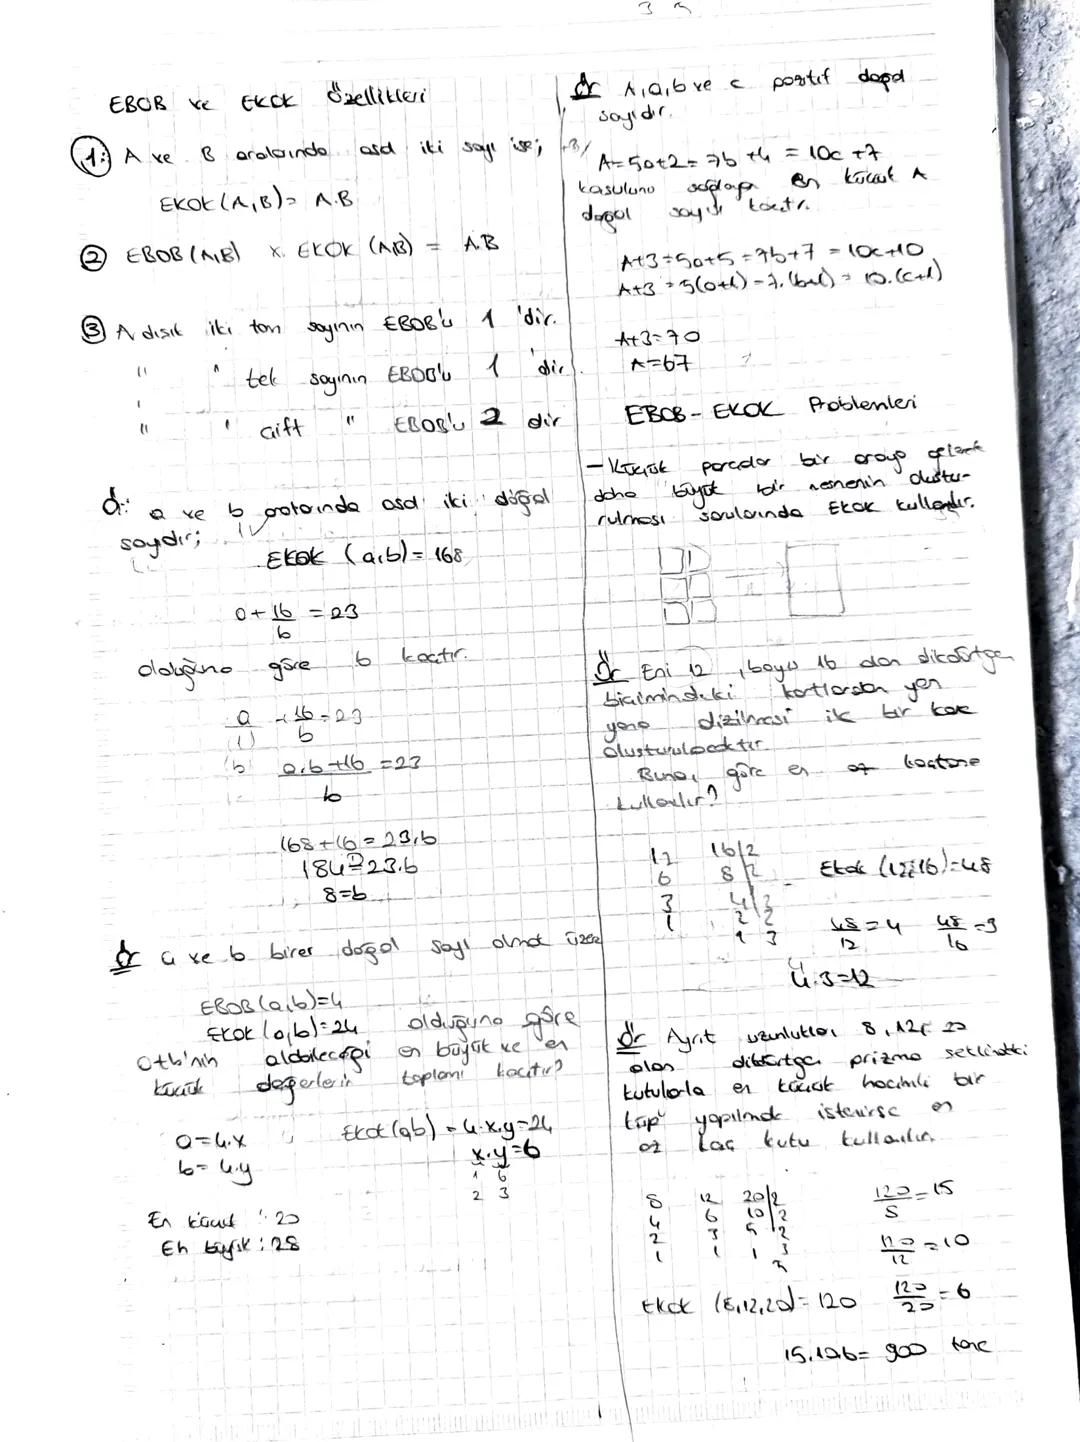 EBOB ve EKOK Özellikleri
1: A ve B aralarında asal iki sayı ise;
EKOK(A,B)= A.B
2 EBOB(A,B) x EKOK(A,B) = A.B
3 Ardışık iki tam sayının EBOB'u 1 'dir.
" " tek sayının EBOB'u 1 'dir.
" " çift " EBOB'u 2 dir
Ö: a ve b aralarında asal iki doğal
sayıdır;
EKOK (a,b) = 168
a + 16/b = 23
olduğuna göre b kaçtır.
a/1 + 16/b = 23
(b)
a.b+16/b = 23
168+16 = 23.b
184 = 23.b
8=b
Ör a ve b birer doğal sayı olmak üzere
EBOB(a,b)=4
EKOK(a,b)=24 olduğuna göre
a+b'nin alabileceği en büyük ve en
küçük değerlerin toplamı kaçtır?
a=4.x
b=4.y
Ekok(a,b) = 4.x.y=24
x.y=6
1 6
2 3
En küçük : 20
En büyük : 28
Ör A,a,b ve c pozitif doğal
sayıdır.
A=5a+2=7b+4=10c+7
koşulunu sağlayan en küçük A
doğal sayısı kaçtır.
A+3=5a+5=7b+7=10c+10
A+3=5(a+1)=7.(b+1)=10.(c+1)
A+3=70
A=67
EBOB-EKOK Problemleri
- Küçük parçalar bir araya gelerek
daha büyük bir nesnenin oluştu-
rulması sorularında EKOK kullanılır.
Ör Eni 12, boyu 16 olan dikdörtgen
biçimindeki kartlardan yan
yana dizilmesi ile bir kare
oluşturulacaktır.
Buna göre en az kaç tane
kullanılır?
12 16|2
6 8|2
3 4|2
1 2 2
1 3
Ekok (12,16)=48
48/12=4 48/16=3
4.3=12
Ör Ayrıt uzunlukları 8,12, 20
olan dikdörtgen prizma şeklindeki
kutularla en küçük hacimli bir
küp yapılmak istenirse en
az kaç kutu kullanılır.
8 12 20|2
4 6 10|2
2 3 5|2
1 1 1 3
120/8=15
120/12=10
Ekok (8,12,20)=120
120/20=6
15.10.6= 900 tane